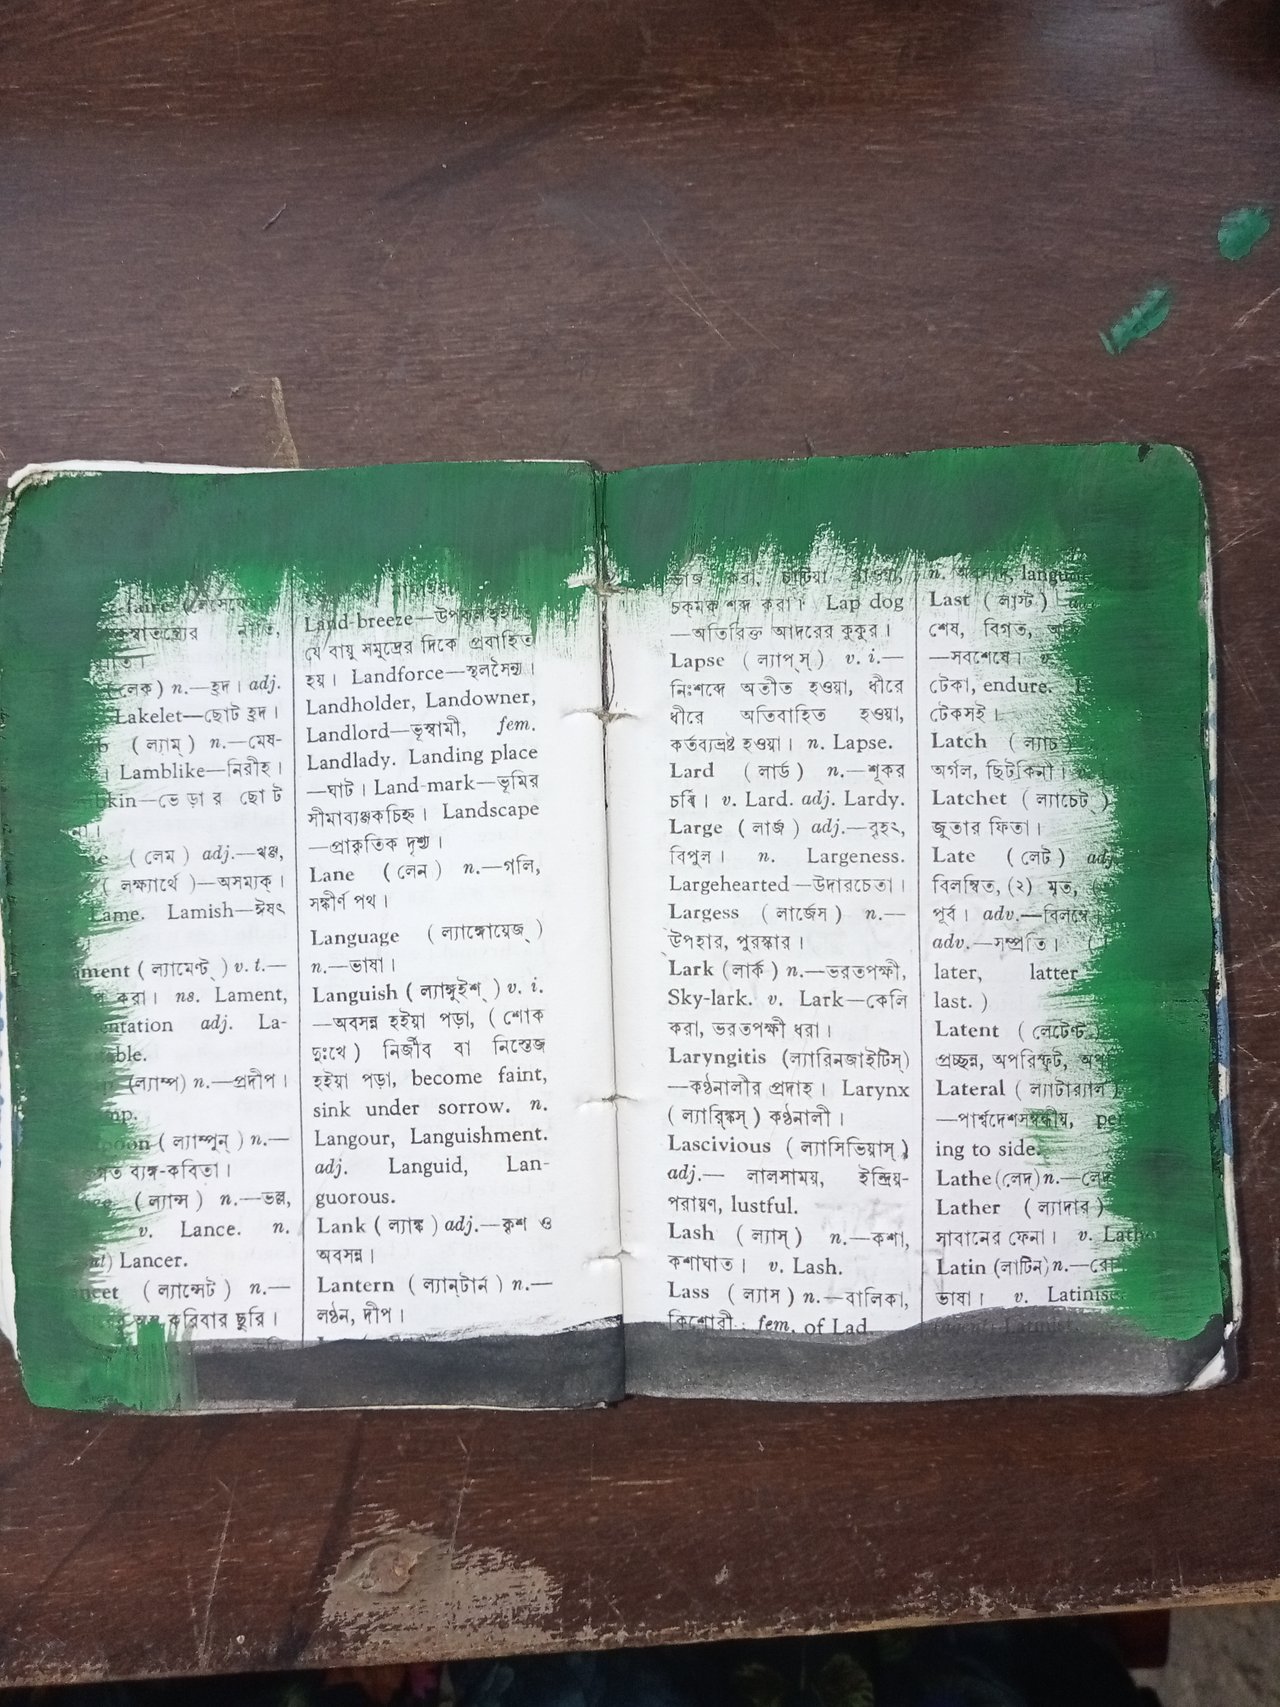 হ্রদ। adj.
Lakelet—ছোট হ্রদ।
( ল্যাম্ ) n.—মেষ-
। Lamblike—নিরীহ।
ভেড়ার ছোট
( লেম ) adj.—খঞ্জ,
( লক্ষ্যার্থে )—অসম্যক্।
Lame. Lamish—ঈষৎ
( ল্যামেন্ট্ ) v. t.—
করা। ns. Lament,
adj. La-
(ল্যাম্প) n.—প্রদীপ।
( ল্যাম্পুন্ ) n.—
ব্যঙ্গ-কবিতা।
( ল্যান্স ) n.—ভল্ল,
v. Lance. n.
Lancer.
( ল্যান্সেট ) n.—
করিবার ছুরি।
Land-breeze—উপকূল হইতে
যে বায়ু সমুদ্রের দিকে প্রবাহিত
হয়। Landforce—স্থলসৈন্য।
Landholder, Landowner,
Landlord—ভূস্বামী, fem.
Landlady. Landing place
—ঘাট। Land-mark—ভূমির
সীমাব্যঞ্জকচিহ্ন। Landscape
—প্রাকৃতিক দৃশ্য।
Lane ( লেন ) n.—গলি,
সঙ্কীর্ণ পথ।
Language ( ল্যাঙ্গোয়েজ্ )
n.—ভাষা।
Languish ( ল্যাঙ্গুইশ্ ) v. i.
—অবসন্ন হইয়া পড়া, ( শোক
দুঃখে ) নির্জীব বা নিস্তেজ
হইয়া পড়া, become faint,
sink under sorrow. n.
Langour, Languishment.
adj. Languid, Lan-
guorous.
Lank ( ল্যাঙ্ক ) adj.—কৃশ ও
অবসন্ন।
Lantern ( ল্যান্টার্ন ) n.—
লণ্ঠন, দীপ।
করা, চাটিয়া খাওয়া,
চক্‌মক শব্দ করা। Lap dog
—অতিরিক্ত আদরের কুকুর।
Lapse ( ল্যাপ্‌স্ ) v. i.—
নিঃশব্দে অতীত হওয়া, ধীরে
ধীরে অতিবাহিত হওয়া,
কর্তব্যভ্রষ্ট হওয়া। n. Lapse.
Lard ( লার্ড ) n.—শূকর
চর্বি। v. Lard. adj. Lardy.
Large ( লার্জ ) adj.—বৃহৎ,
বিপুল। n. Largeness.
Largehearted—উদারচেতা।
Largess ( লার্জেস ) n.—
উপহার, পুরস্কার।
Lark (লার্ক) n.—ভরতপক্ষী,
Sky-lark. v. Lark—কেলি
করা, ভরতপক্ষী ধরা।
Laryngitis (ল্যারিনজাইটিস্)
—কণ্ঠনালীর প্রদাহ। Larynx
( ল্যারিঙ্কস্ ) কণ্ঠনালী।
Lascivious ( ল্যাসিভিয়াস্ )
adj.— লালসাময়, ইন্দ্রিয়-
পরায়ণ, lustful.
Lash ( ল্যাস্ ) n.—কশা,
কশাঘাত। v. Lash.
Lass ( ল্যাস ) n.—বালিকা,
কিশোরী. fem. of Lad
n.
Last ( লাস্ট )
শেষ, বিগত,
—সবশেষে।
টেকা, endure.
টেকসই।
Latch ( ল্যাচ )
অর্গল, ছিটকিনী।
Latchet ( ল্যাচেট্ )
জুতার ফিতা।
Late ( লেট ) adj.
বিলম্বিত, (২) মৃত,
পূর্ব। adv.—বিলম্বে
adv.—সম্প্রতি।
later, latter
last. )
Latent ( লেটেন্ট )
প্রচ্ছন্ন, অপরিস্ফুট,
Lateral ( ল্যাটার‍্যাল )
—পার্শ্বদেশসম্বন্ধীয়,
ing to side.
Lathe (লেদ) n.—
Lather ( ল্যাদার )
সাবানের ফেনা। v.
Latin (লাটিন) n.—
ভাষা। v. Latinise